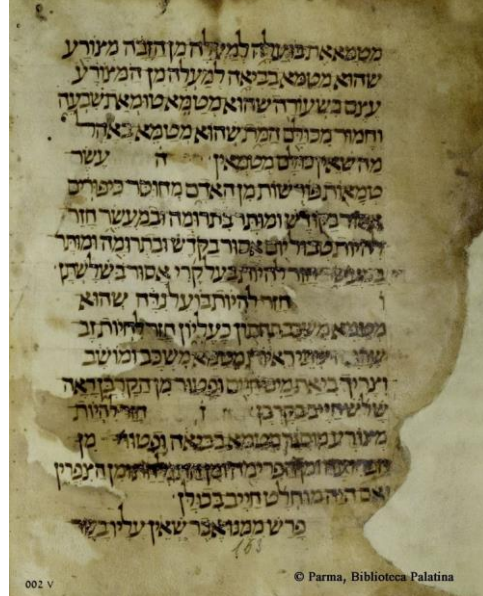 מטמאאת בועלה למעלה מן הזבה מצורע
שהוא מטמא בביאה למעלה מן המצורע
עצם כשעורה שהוא מטמא טומאת שבעה
וחמור מכולם המת שהוא מטמא באהל
מה שאין כולם מטמאין ה עשר
טמאות פורשות מן האדם מחוסר כיפורים
אסור בקודש ומותר בתרומה ובמעשר חזר
להיות טבול יום אסור בקדש ובתרומה ומותר
במעשר חזר להיות בעל קרי אסור בשלשתן
ו חזר להיות בועל נדה שהוא
מטמא משכב תחתון כעליון חזר להיות זב
ראיות מטמא משכב ומושב
וצריך ביאת מים חיים ופטור מן הקרבן ראה
שלש חייב בקרבן ז חזר להיות
מצורע מוסגר מטמא בביאה ופטור מן
ומן הפרימה ומן התגלחת ומן הצפרין
ואם היה מוחלט חייב בכולן
פרש ממנו אבר שאין עליו בשר
183
002 V
© Parma, Biblioteca Palatina